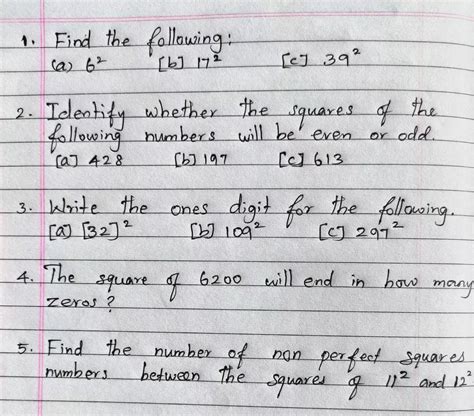 1. Find the following:
(a) 6² [b] 17² [c] 39²
2. Identify whether the squares of the
following numbers will be even or odd.
[a] 428 [b] 197 [c] 613
3. Write the ones digit for the following.
[a] [32]² [b] 109² [c] 297²
4. The square of 6200 will end in how many
zeros?
5. Find the number of non perfect squares
numbers between the squares of 11² and 12²